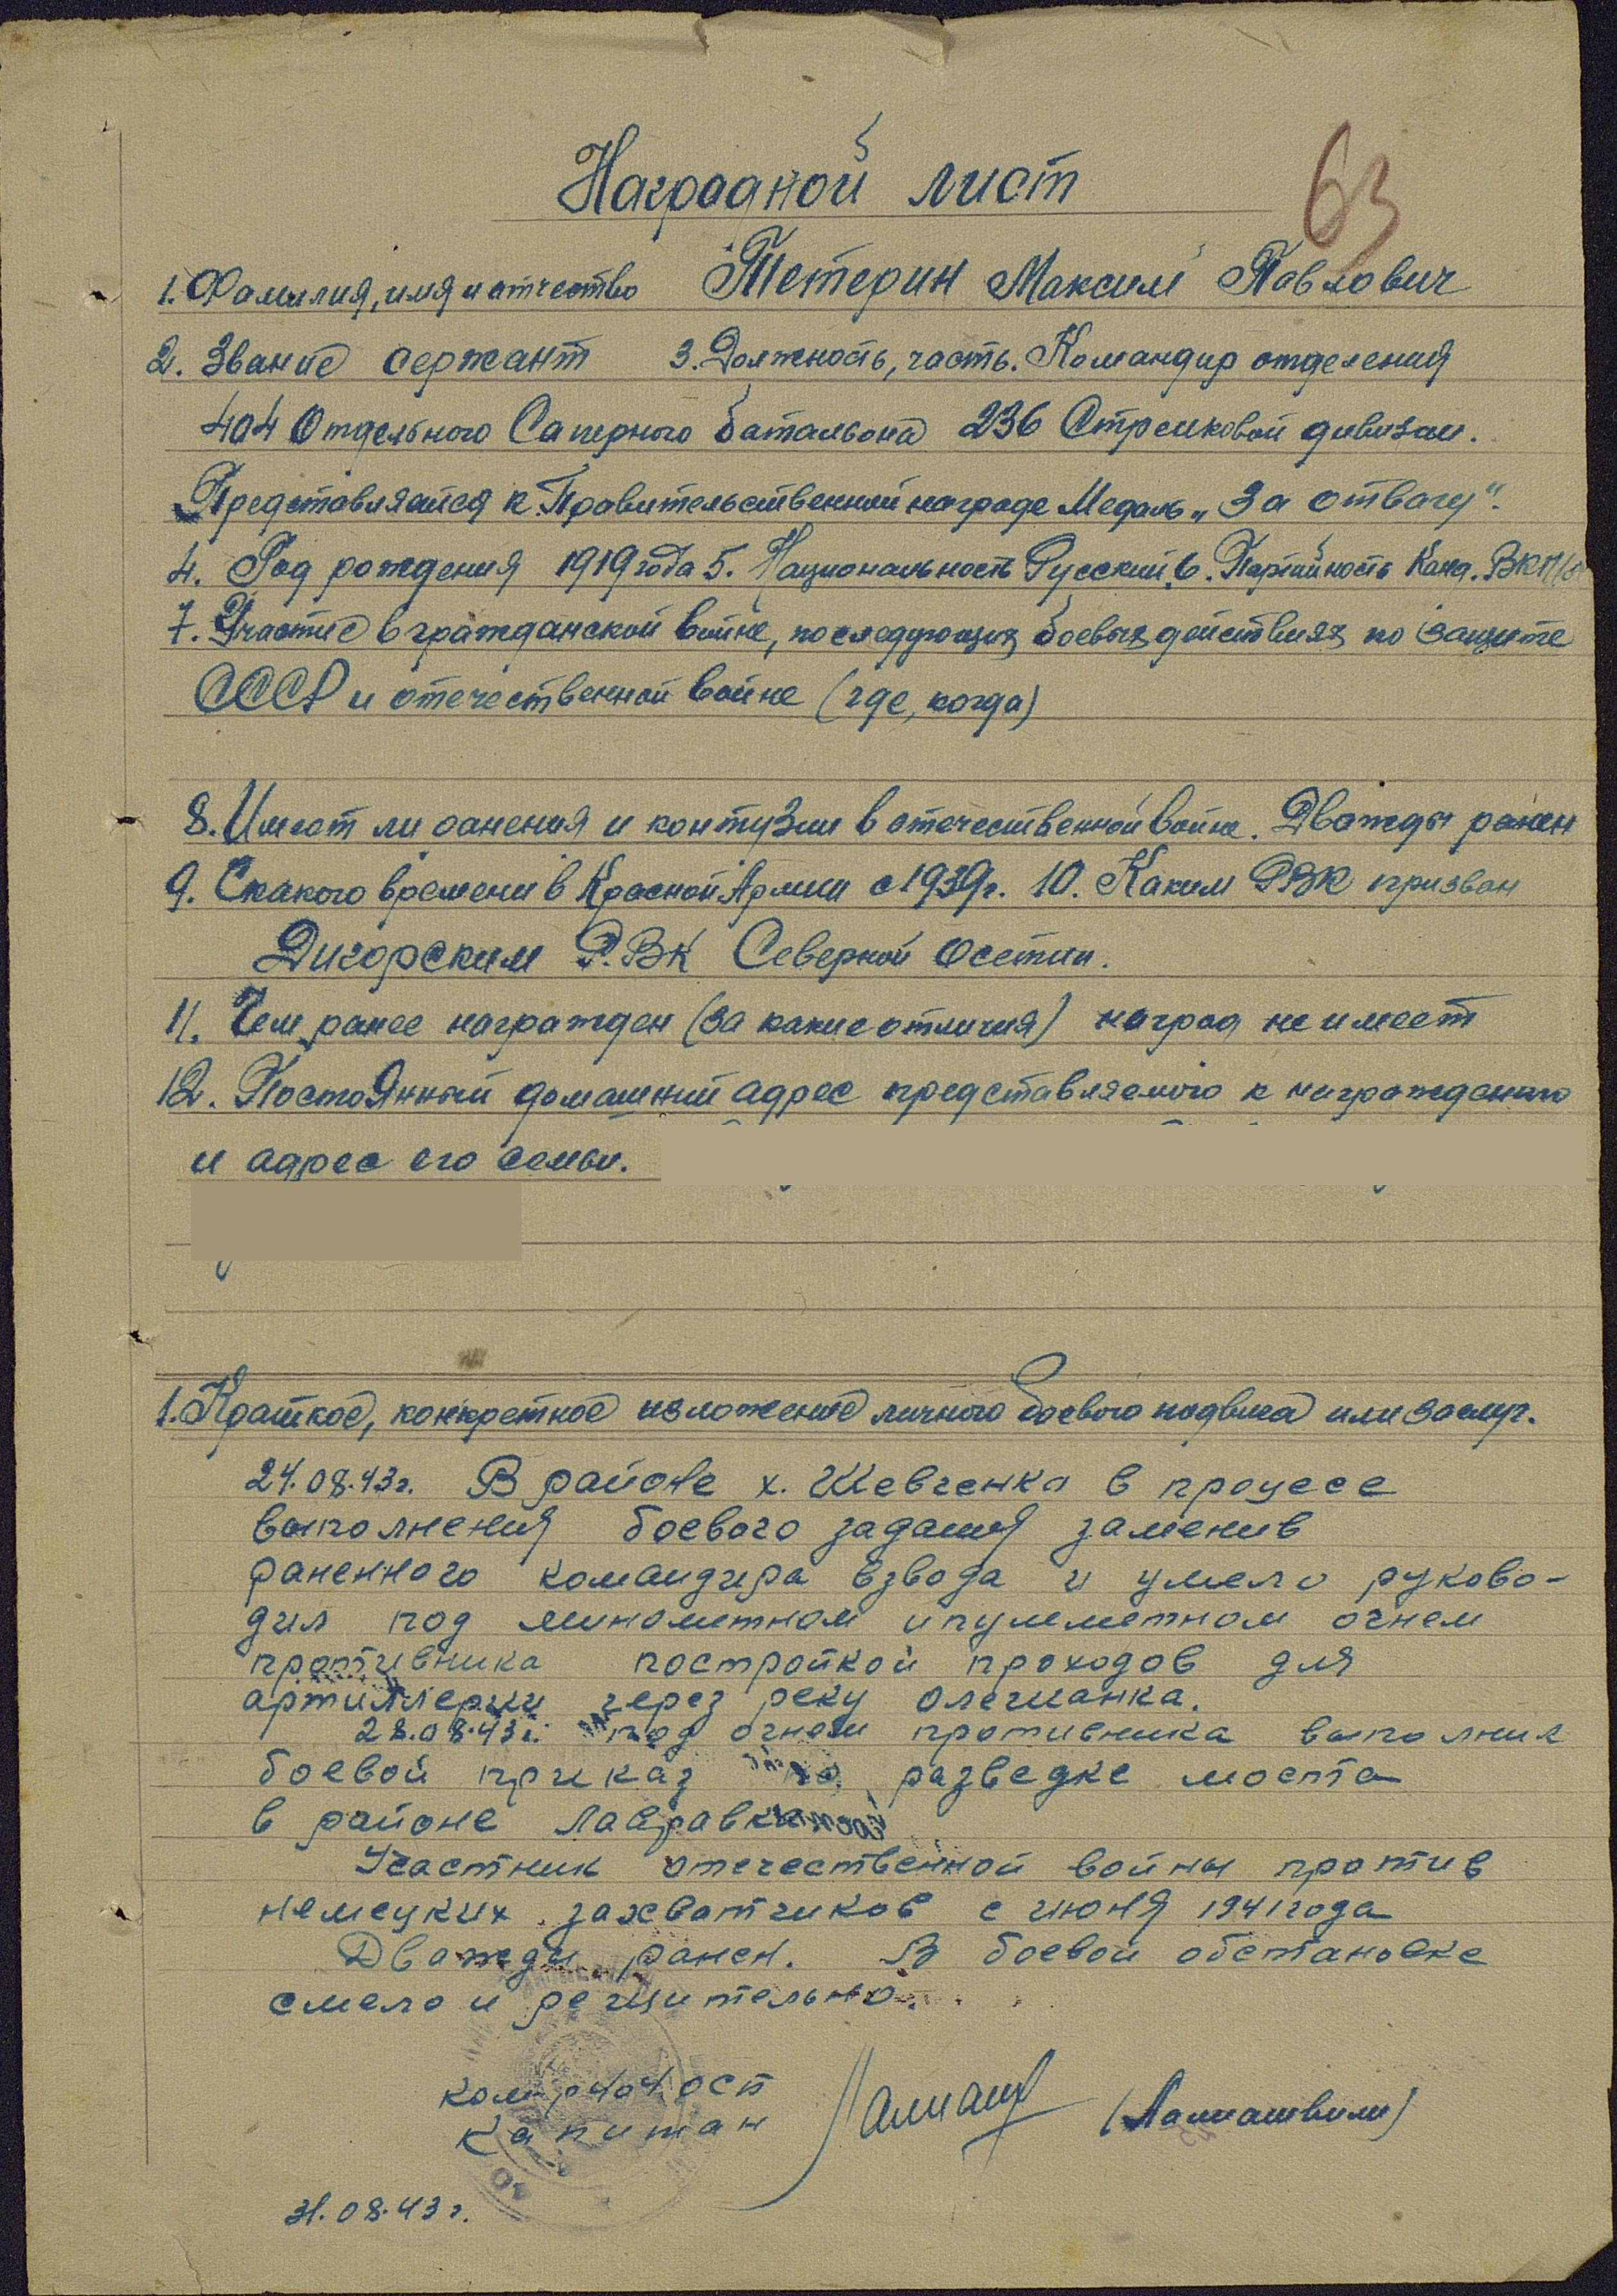 63
Наградной лист
1. Фамилия, имя и отчество Тетерин Максим Павлович
2. Звание сержант 3. Должность, часть. Командир отделения
404 Отдельного Саперного батальона 236 Стрелковой дивизии.
Представляется к Правительственной награде Медаль „За отвагу".
4. Год рождения 1919 года 5. Национальность Русский 6. Партийность Канд. ВКП/б
7. Участие в гражданской войне, последующих боевых действиях по защите
СССР и отечественной войне (где, когда)
8. Имеет ли ранения и контузии в отечественной войне. Дважды ранен
9. С какого времени в Красной Армии с 1939г. 10. Каким РВК призван
Дигорским Р.ВК Северной Осетии.
11. Чем ранее награжден (за какие отличия) наград не имеет
12. Постоянный домашний адрес представляемого к награждению
и адрес его семьи.
1. Краткое, конкретное изложение личного боевого подвига или заслуг.
24.08.43г. В районе х. Шевченка в процесе
выполнения боевого задания заменив
раненного командира взвода и умело руково-
дил под минометном и пулеметном огнем
противника постройкой проходов для
артиллерии через реку олечианка.
28.08.43г. под огнем противника выполнил
боевой приказ по разведке моста
в районе Лавравка
Участник отечественной войны против
немецких захватчиков с июня 1941 года
Дважды ранен. В боевой обстановке
смело и решительно.
ком-р 404 ОСБ
капитан (Ламиашвили)
31.08.43г.